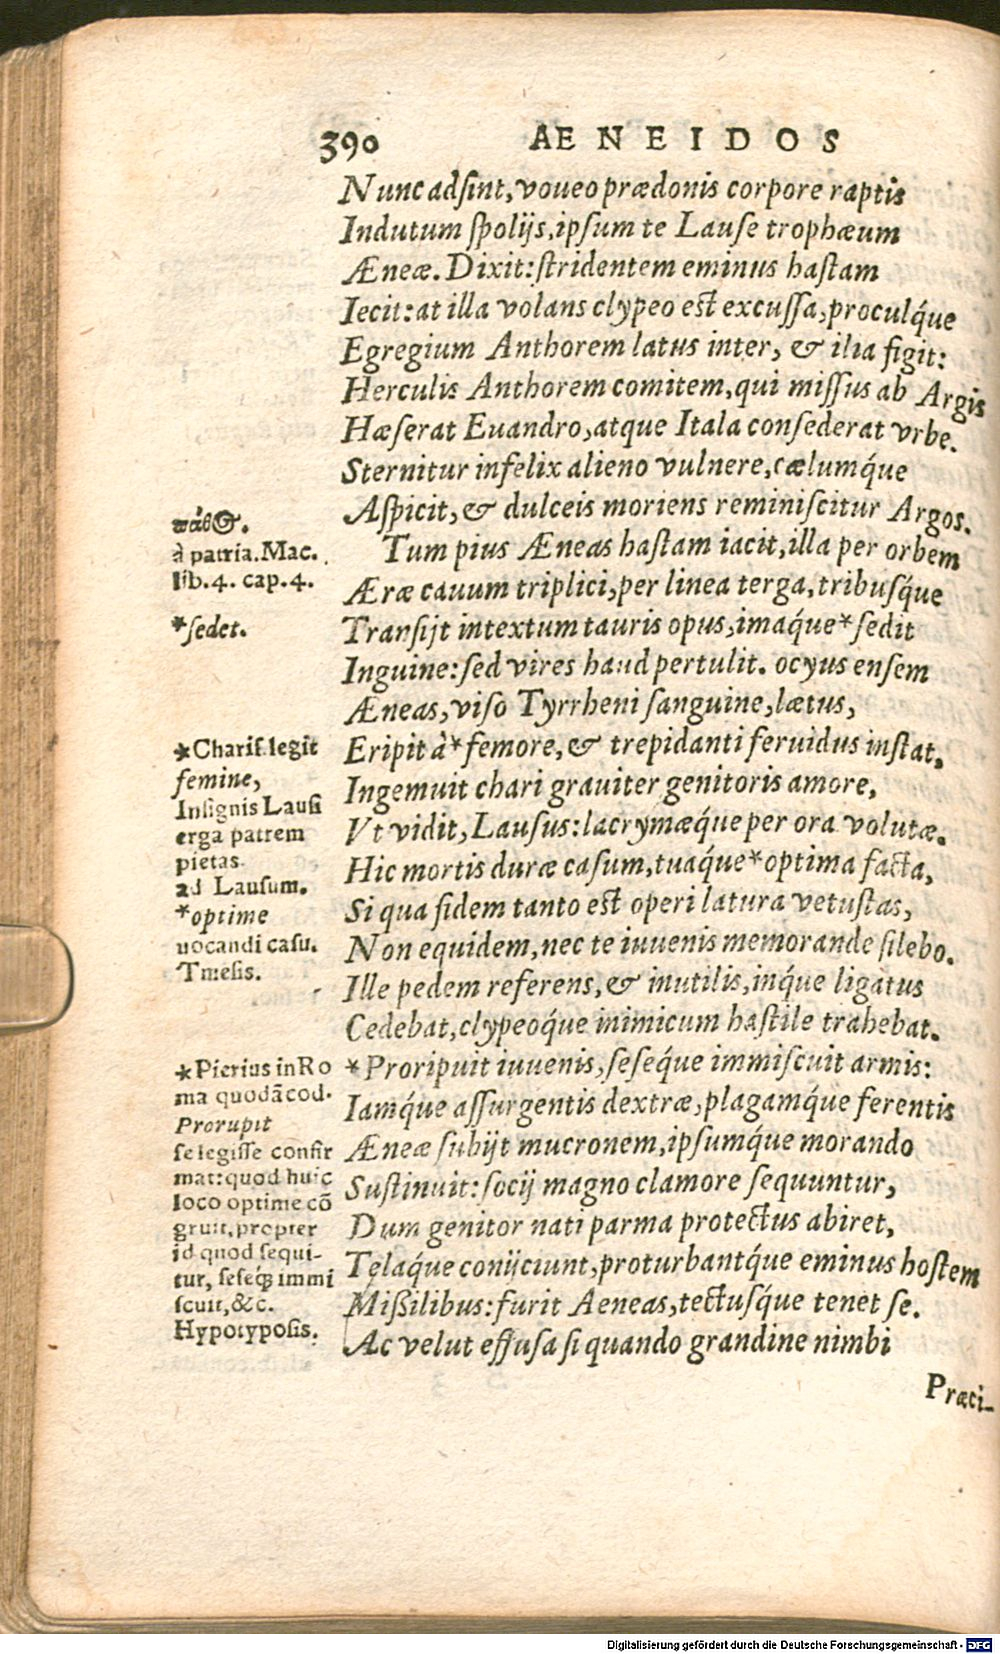 390 AENEIDOS
Nunc adsint, voueo prædonis corpore raptis
Indutum spolijs, ipsum te Lause trophæum
Æneæ. Dixit: stridentem eminus hastam
Iecit: at illa volans clypeo est excussa, proculq́ue
Egregium Anthorem latus inter, & ilia figit:
Herculis Anthorem comitem, qui missus ab Argis
Hæserat Euandro, atque Itala consederat vrbe.
Sternitur infelix alieno vulnere, cælumq́ue
Aspicit, & dulceis moriens reminiscitur Argos.
Tum pius Æneas hastam iacit, illa per orbem
Æræ cauum triplici, per linea terga, tribusq́ue
Transijt intextum tauris opus, imaq́ue * sedit
Inguine: sed vires haud pertulit. ocyus ensem
Æneas, viso Tyrrheni sanguine, lætus,
Eripit à * femore, & trepidanti feruidus instat,
Ingemuit chari grauiter genitoris amore,
Vt vidit, Lausus: lacrymæq́ue per ora volutæ.
Hic mortis duræ casum, tuaq́ue * optima facta,
Si qua fidem tanto est operi latura vetustas,
Non equidem, nec te iuuenis memorande silebo.
Ille pedem referens, & inutilis, inq́ue ligatus
Cedebat, clypeoq́ue inimicum hastile trahebat.
* Proripuit iuuenis, seseq́ue immiscuit armis:
Iamq́ue assurgentis dextræ, plagamq́ue ferentis
Æneæ subijt mucronem, ipsumq́ue morando
Sustinuit: socij magno clamore sequuntur,
Dum genitor nati parma protectus abiret,
Telaq́ue conijciunt, proturbantq́ue eminus hostem
Mißilibus: furit Aeneas, tectusq́ue tenet se.
Ac velut effusa si quando grandine nimbi
Præci-
πάθος.
à patria. Mac.
lib. 4. cap. 4.
* sedet.
* Charis. legit
femine,
Insignis Lausi
erga patrem
pietas
ad Lausum.
* optime
uocandi casu.
Tmesis.
* Pierius in Ro
ma quodā cod.
Prorupit
se legisse confir
mat: quod huic
loco optime cō
gruit, propter
id quod sequi-
tur, seseq́; immi
scuit, &c.
Hypotyposis.
Digitalisierung gefördert durch die Deutsche Forschungsgemeinschaft - DFG